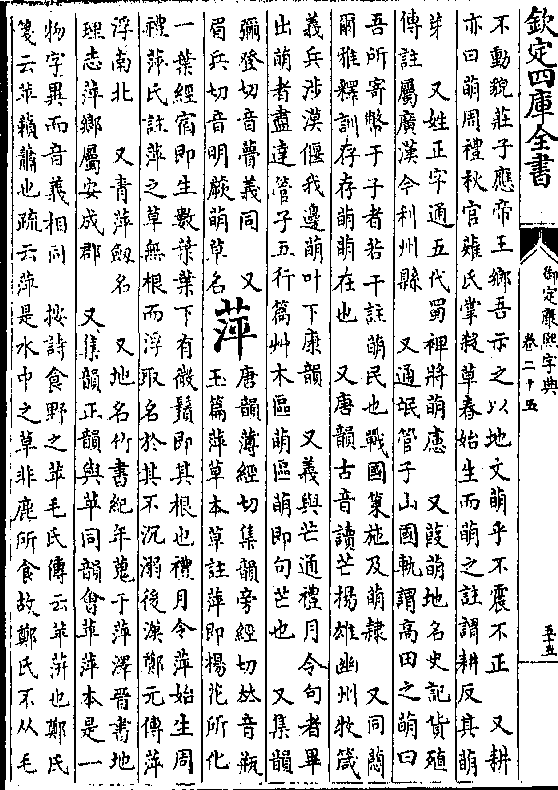 欽定四庫全書
御定康熙字典
卷二十五
五十五
不動貌莊子應帝王鄉吾示之以地文萌乎不震不正　又耕
亦曰萌周禮秋官薙氏掌殺草春始生而萌之註謂耕反其萌
芽　又姓正字通五代蜀裨將萌慮　又葭萌地名史記貨殖
傳註屬廣漢今利州縣　又通氓管子山國軌謂高田之萌曰
吾所寄幣于子者若干註萌民也戰國策施及萌隸　又同蕄
爾雅釋訓存存萌萌在也　又唐韻古音讀芒楊雄幽州牧箴
義兵涉漠偃我邊萌叶下康韻　又義與芒通禮月令句者畢
出萌者盡達管子五行篇艸木區萌區萌即句芒也　又集韻
彌登切音瞢義同　又
眉兵切音明蕨萌草名
萍
唐韻薄經切集韻旁經切𠀤音瓶
玉篇萍草本草註萍即楊花所化
一葉經宿即生數葉葉下有微鬚即其根也禮月令萍始生周
禮萍氏註萍之草無根而浮取名於其不沉溺後漢鄭元傳萍
浮南北　又青萍劒名　又地名竹書紀年蒐于萍澤晉書地
理志萍鄉屬安成郡　又集韻正韻與苹同韻會苹萍本是一
物字異而音義相同　按詩食野之苹毛氏傳云苹蓱也鄭氏
箋云苹藾蕭也疏云萍是水中之草非鹿所食故鄭氏不从毛